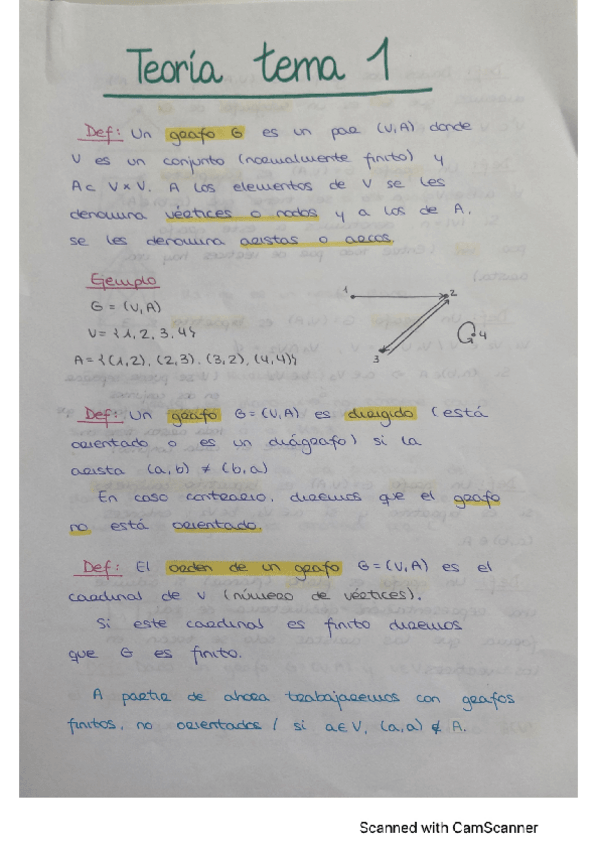 Teoría tema 1
Def: Un grafo G es un par (V,A) donde
V es un conjunto (normalmente finito) y
A ⊂ V×V. A los elementos de V se les
denomina vértices o nodos y a los de A,
se les denomina aristas o arcos.
Ejemplo
G = (V,A)
V = {1, 2, 3, 4}
A = {(1,2), (2,3), (3,2), (4,4)}
1
2
3
4
Def: Un grafo G = (V,A) es dirigido (está
orientado o es un diágrafo) si la
arista (a,b) ≠ (b,a)
En caso contrario, diremos que el grafo
no está orientado.
Def: El orden de un grafo G = (V,A) es el
cardinal de V (número de vértices).
Si este cardinal es finito diremos
que G es finito.
A partir de ahora trabajaremos con grafos
finitos, no orientados / si a ∈ V, (a,a) ∉ A.
Scanned with CamScanner